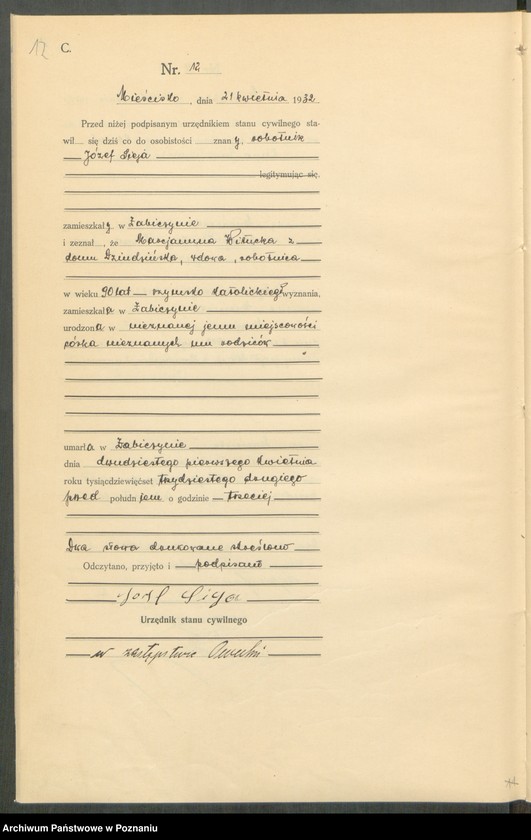 12
C.
Nr. 12
Mieścisko, dnia 21 kwietnia 1932
Przed niżej podpisanym urzędnikiem stanu cywilnego sta-
wił się dziś co do osobistości znany, robotnik
Józef
legitymując się.
zamieszkały w Żabiczynie
i zeznał, że Marjanna z
domu Dziudzińska, wdowa, robotnica
w wieku 90 lat rzymsko katolickiego wyznania,
zamieszkała w Żabiczynie
urodzona w nieznanej jemu miejscowości
córka nieznanych mu rodziców
umarła w Żabiczynie
dnia dwudziestego pierwszego kwietnia
roku tysiącdziewięćset trzydziestego drugiego
przed połudnjem o godzinie trzeciej
Dwa słowa drukowane skreślono
Odczytano, przyjęto i podpisano
Urzędnik stanu cywilnego
w zastępstwie
Archiwum Państwowe w Poznaniu